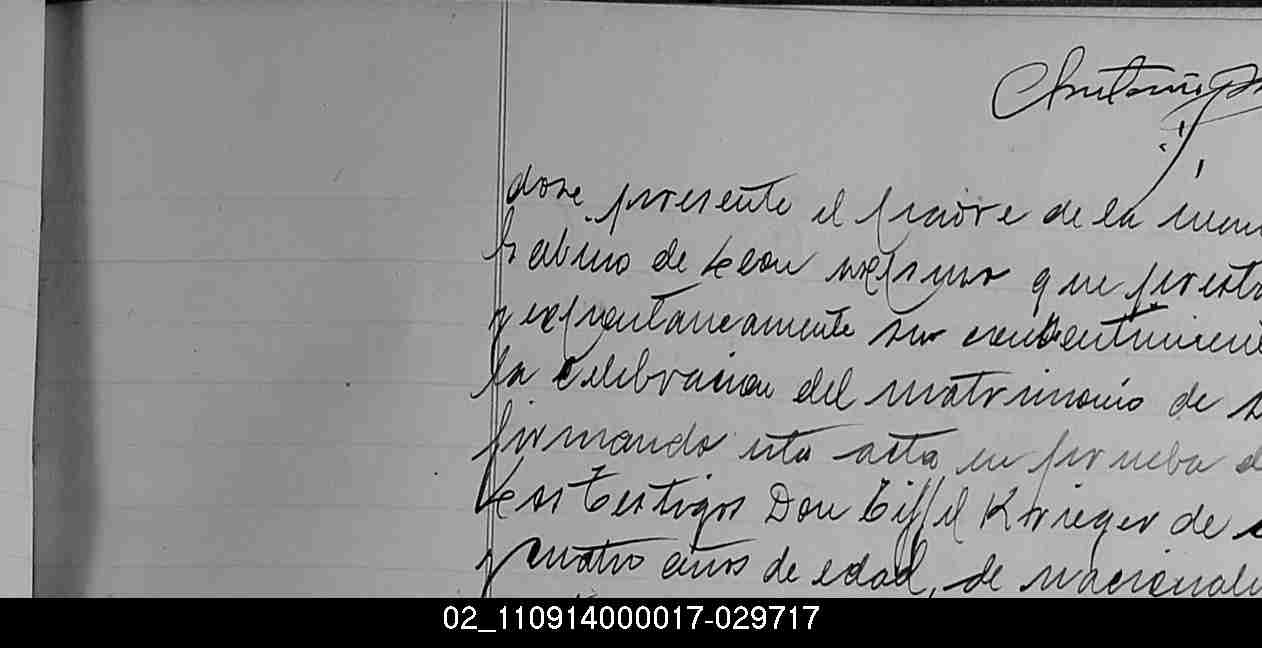 Antonio
dose presente el padre de la
Sabino de Leon que
y expontaneamente su consentimien
la celebracion del matrimonio de s
firmando esta acta en prueba d
Los testigos Don Eiffel Krieger de
y cuatro años de edad, de nacionali
02_110914000017-029717